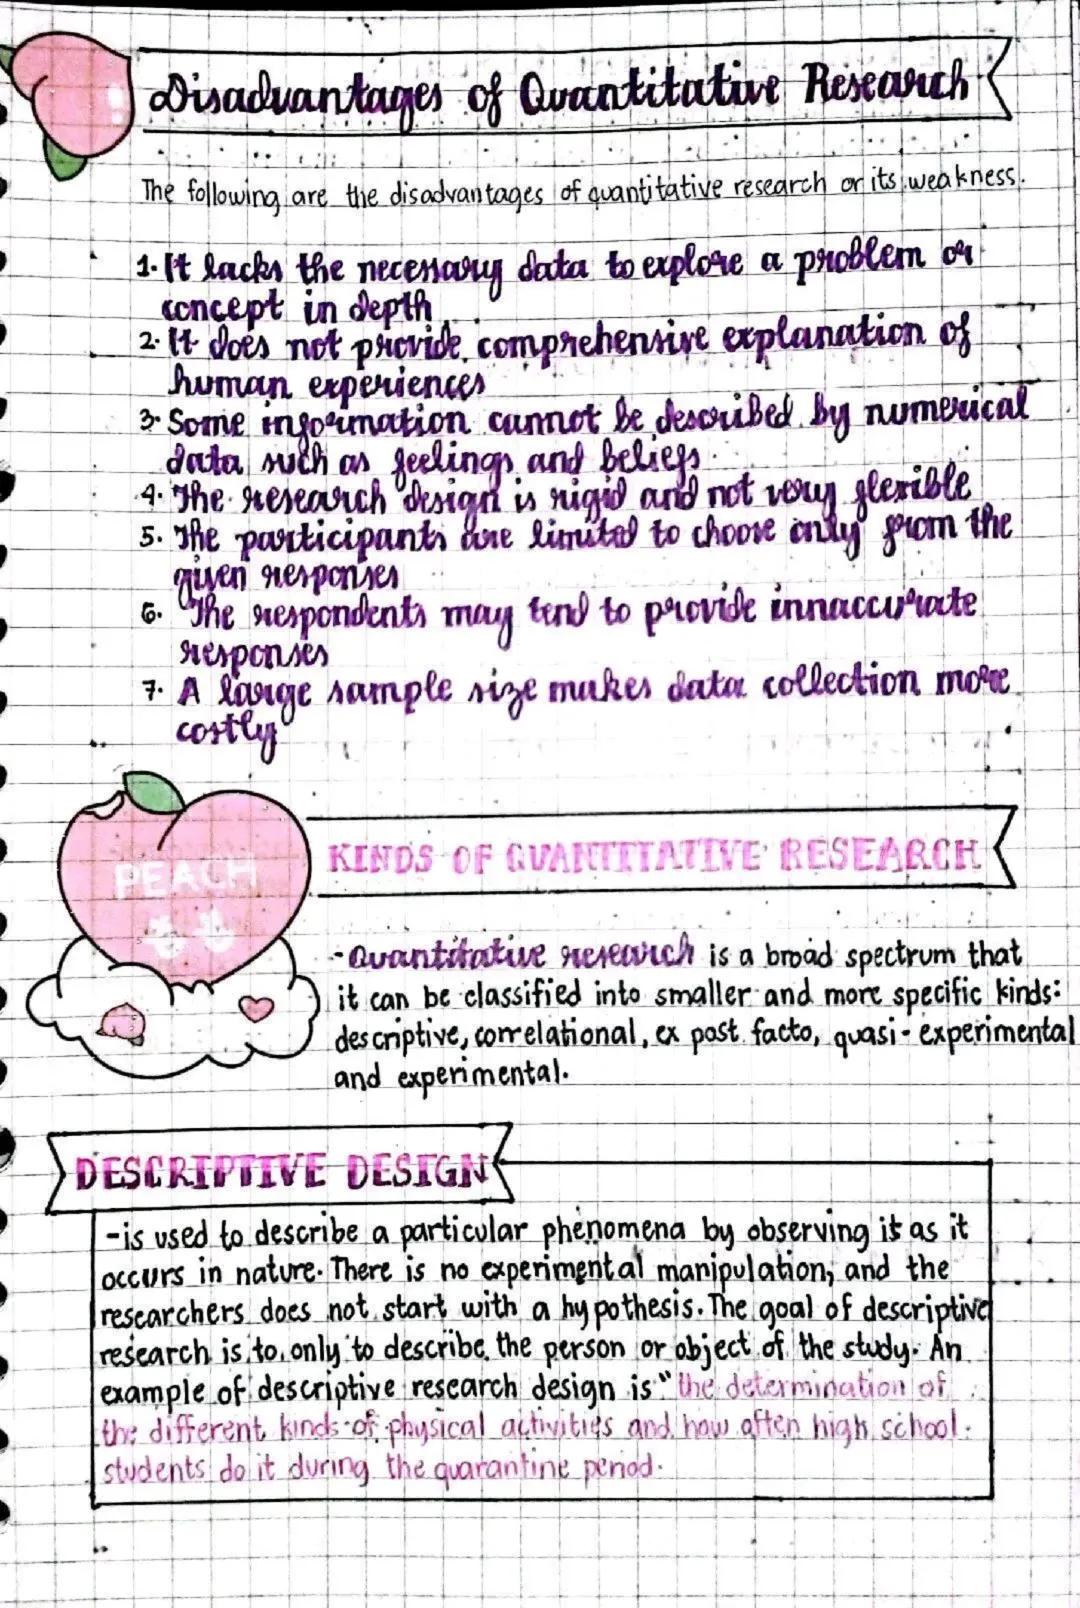 Disadvantages of Quantitative Research
The following are the disadvantages of quantitative research or its weakness.
1. It lacks the necessary data to explore a problem or
concept in depth
2. It does not provide comprehensive explanation of
human experiences
3. Some information cannot be described by numerical
data such as feelings and beliefs.
4. The research design is rigid and not very flexible
5. The participants are limited to choose only from the
given responses
6. The respondents may tend to provide innaccurate
responses
7. A large sample size makes data collection more
costly
PEACH
KINDS OF QUANTITATIVE RESEARCH
-Quantitative research is a broad spectrum that
it can be classified into smaller and more specific kinds:
descriptive, correlational, ex post facto, quasi-experimental
and experimental.
DESCRIPTIVE DESIGN
-is used to describe a particular phenomena by observing it as it
occurs in nature. There is no experimental manipulation, and the
researchers does not start with a hypothesis. The goal of descriptive
research is to only to describe the person or object of the study. An
example of descriptive research design is "the determination of
the different kinds of physical activities and how often high school
students do it during the quarantine period.